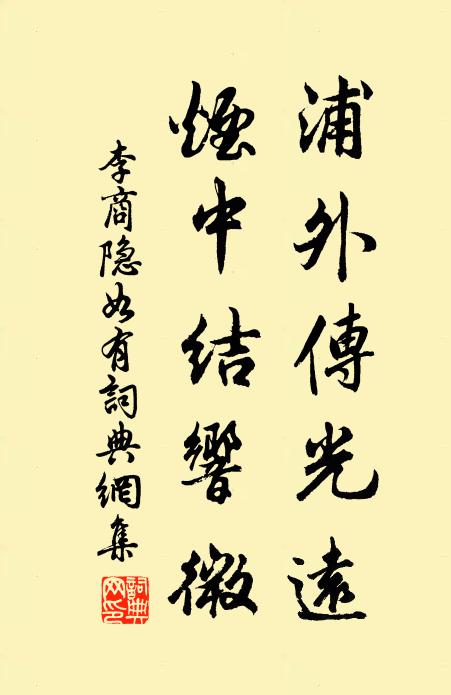 浦外傳光遠
煙中結響微
李商隐如有詞典網集
詞典網印